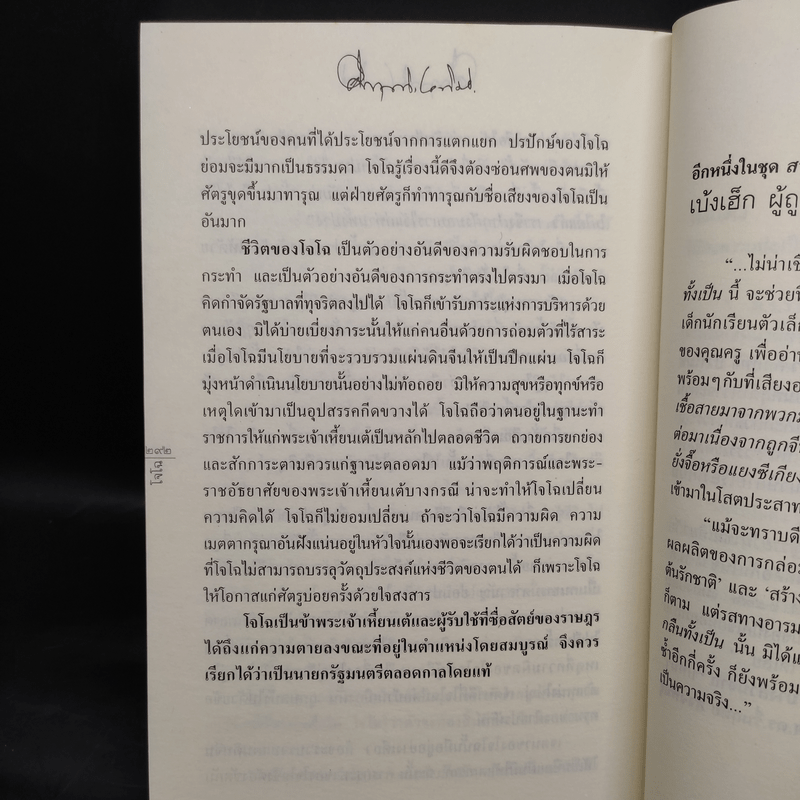 ประโยชน์ของคนที่ได้ประโยชน์จากการแตกแยก ปรปักษ์ของโจโฉ
ย่อมจะมีมากเป็นธรรมดา โจโฉรู้เรื่องนี้ดีจึงต้องซ่อนศพของตนมิให้
ศัตรูขุดขึ้นมาทารุณ แต่ฝ่ายศัตรูก็ทำทารุณกับชื่อเสียงของโจโฉเป็น
อันมาก
ชีวิตของโจโฉ เป็นตัวอย่างอันดีของความรับผิดชอบในการ
กระทำ และเป็นตัวอย่างอันดีของการกระทำตรงไปตรงมา เมื่อโจโฉ
คิดกำจัดรัฐบาลที่ทุจริตลงไปได้ โจโฉก็เข้ารับภาระแห่งการบริหารด้วย
ตนเอง มิได้บ่ายเบี่ยงภาระนั้นให้แก่คนอื่นด้วยการถ่อมตัวที่ไร้สาระ
เมื่อโจโฉมีนโยบายที่จะรวบรวมแผ่นดินจีนให้เป็นปึกแผ่น โจโฉก็
มุ่งหน้าดำเนินนโยบายนั้นอย่างไม่ท้อถอย มิให้ความสุขหรือทุกข์หรือ
เหตุใดเข้ามาเป็นอุปสรรคกีดขวางได้ โจโฉถือว่าตนอยู่ในฐานะทำ
ราชการให้แก่พระเจ้าเหี้ยนเต้เป็นหลักไปตลอดชีวิต ถวายการยกย่อง
และสักการะตามควรแก่ฐานะตลอดมา แม้ว่าพฤติการณ์และพระ-
ราชอัธยาศัยของพระเจ้าเหี้ยนเต้บางกรณี น่าจะทำให้โจโฉเปลี่ยน
ความคิดได้ โจโฉก็ไม่ยอมเปลี่ยน ถ้าจะว่าโจโฉมีความผิด ความ
เมตตากรุณาอันฝังแน่นอยู่ในหัวใจนั้นเองพอจะเรียกได้ว่าเป็นความผิด
ที่โจโฉไม่สามารถบรรลุวัตถุประสงค์แห่งชีวิตของตนได้ ก็เพราะโจโฉ
ให้โอกาสแก่ศัตรูบ่อยครั้งด้วยใจสงสาร
โจโฉเป็นข้าพระเจ้าเหี้ยนเต้และผู้รับใช้ที่ซื่อสัตย์ของราษฎร
ได้ถึงแก่ความตายลงขณะที่อยู่ในตำแหน่งโดยสมบูรณ์ จึงควร
เรียกได้ว่าเป็นนายกรัฐมนตรีตลอดกาลโดยแท้
๒๙๒
โจโฉ
อีกหนึ่งในชุด ส
เบ้งเฮ็ก ผู้ถู
“...ไม่น่าเชื
ทั้งเป็น นี้ จะช่วยพ
เด็กนักเรียนตัวเล็ก
ของคุณครู เพื่ออ่าน
พร้อมๆกับที่เสียงอ
เชื้อสายมาจากพวกม
ต่อมาเนื่องจากลูกจี
ยั่งจื้อหรือแยงซีเกียง
เข้ามาในโสตประสาท
“แม้จะทราบดี
ผลผลิตของการกล่อม
ต้นรักชาติ’ และ ‘สร้าง
ก็ตาม แต่รสทางอารม
กลืนทั้งเป็น นั้น มิได้แ
ซ้ำอีกกี่ครั้ง ก็ยังพร้อม
เป็นความจริง...”